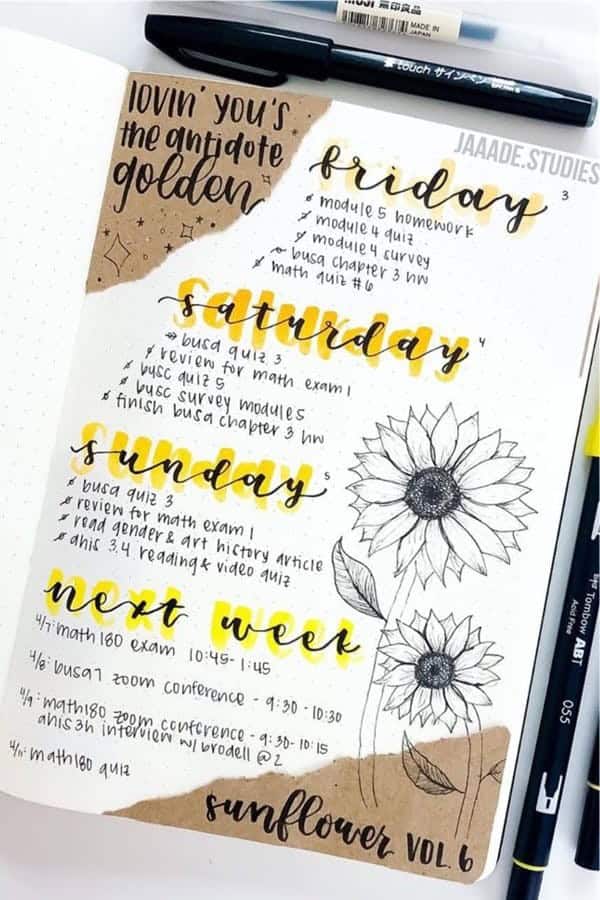 MUJI 無印良品
MADE IN JAPAN
touch サインペン
JAAADE.STUDIES
lovin' you's
the antidote
golden
friday 3
module 5 homework
module 4 quiz
module 4 survey
busa chapter 3 hw
math quiz #6
saturday 4
busa quiz 3
review for math exam 1
busc quiz 5
busc survey modules
finish busa chapter 3 hw
sunday 5
busa quiz 3
review for math exam 1
read gender & art history article
ahis 3,4 reading & video quiz
next week
4/7: math 180 exam 10:45-1:45
4/8: busa 7 zoom conference - 9:30 - 10:30
4/9: math180 zoom conference - 9:30-10:15
ahis3h interview w/ brodell @ 2
4/11: math180 quiz
sunflower VOL. 6
Tombow ABT
Acid Free
055